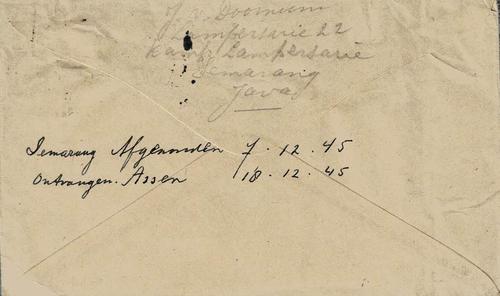 J. v. Doornum
Lampersarie 22
Kamp Lampersarie
Semarang
Java
Semarang Afgezonden 7.12.45
Ontvangen. Assen 18.12.45